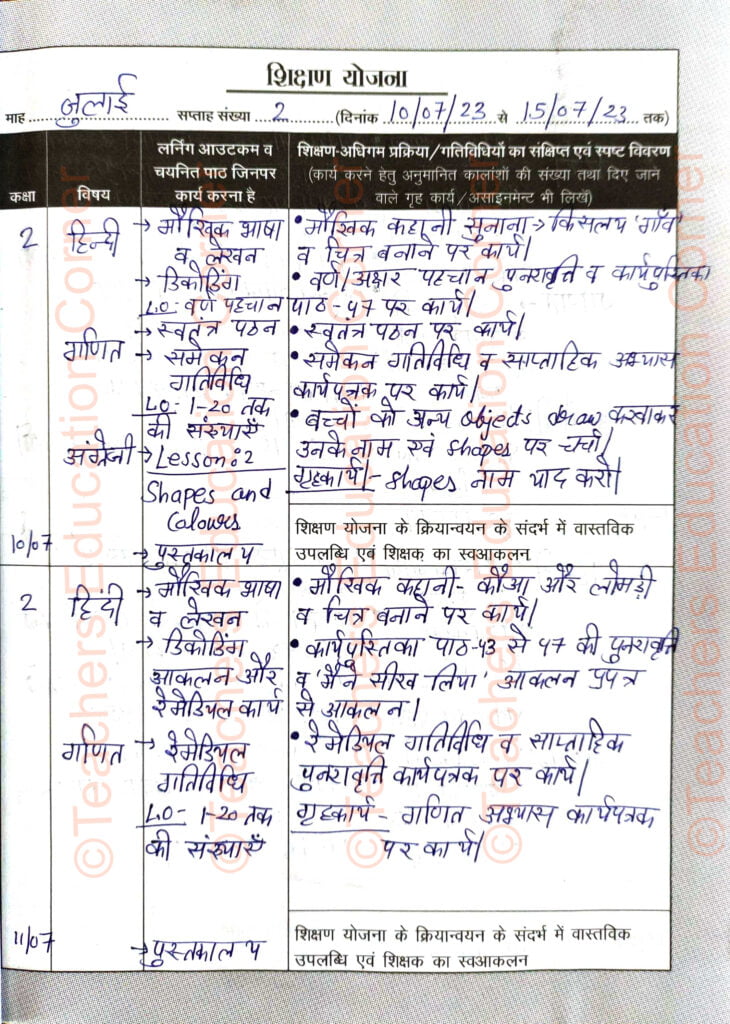 शिक्षण योजना
माह जुलाई सप्ताह संख्या 2 (दिनांक 10/07/23 से 15/07/23 तक)
कक्षा
विषय
लर्निंग आउटकम व
चयनित पाठ जिनपर
कार्य करना है
शिक्षण-अधिगम प्रक्रिया/गतिविधियों का संक्षिप्त एवं स्पष्ट विवरण
(कार्य करने हेतु अनुमानित कालांशों की संख्या तथा दिए जाने
वाले गृह कार्य/असाइनमेन्ट भी लिखें)
2
हिन्दी
→ मौखिक भाषा
व लेखन
→ डिकोडिंग
L.O:- वर्ण पहचान
• मौखिक कहानी सुनाना → किसलय 'गाँव'
व चित्र बनाने पर कार्य।
• वर्ण/अक्षर पहचान पुनरावृत्ति व कार्यपुस्तिका
पाठ-47 पर कार्य।
गणित
→ स्वतंत्र पठन
→ समेकन
गतिविधि
L.O:- 1-20 तक
की संख्याएँ
• स्वतंत्र पठन पर कार्य।
• समेकन गतिविधि व साप्ताहिक अभ्यास
कार्यपत्रक पर कार्य।
अंग्रेजी
→ Lesson:2
Shapes and
Colours
• बच्चों को अन्य objects draw करवाकर
उनके नाम एवं shapes पर चर्चा।
गृहकार्य।- Shapes नाम याद करो।
10/07
→ पुस्तकालय
शिक्षण योजना के क्रियान्वयन के संदर्भ में वास्तविक
उपलब्धि एवं शिक्षक का स्वआकलन
2
हिंदी
→ मौखिक भाषा
व लेखन
→ डिकोडिंग
आकलन और
रेमेडियल कार्य
• मौखिक कहानी- कौआ और लोमड़ी
व चित्र बनाने पर कार्य।
• कार्यपुस्तिका पाठ-43 से 47 की पुनरावृत्ति
व 'मैंने सीख लिया' आकलन प्रपत्र
से आकलन।
गणित
→ रेमेडियल
गतिविधि
L.O- 1-20 तक
की संख्याएँ
• रेमेडियल गतिविधि व साप्ताहिक
पुनरावृत्ति कार्यपत्रक पर कार्य।
गृहकार्य - गणित अभ्यास कार्यपत्रक
पर कार्य।
11/07
→ पुस्तकालय
शिक्षण योजना के क्रियान्वयन के संदर्भ में वास्तविक
उपलब्धि एवं शिक्षक का स्वआकलन
©Teachers Education Corner
©Teachers Education Corner
©Teachers Education Corner
©Teachers Education Corner